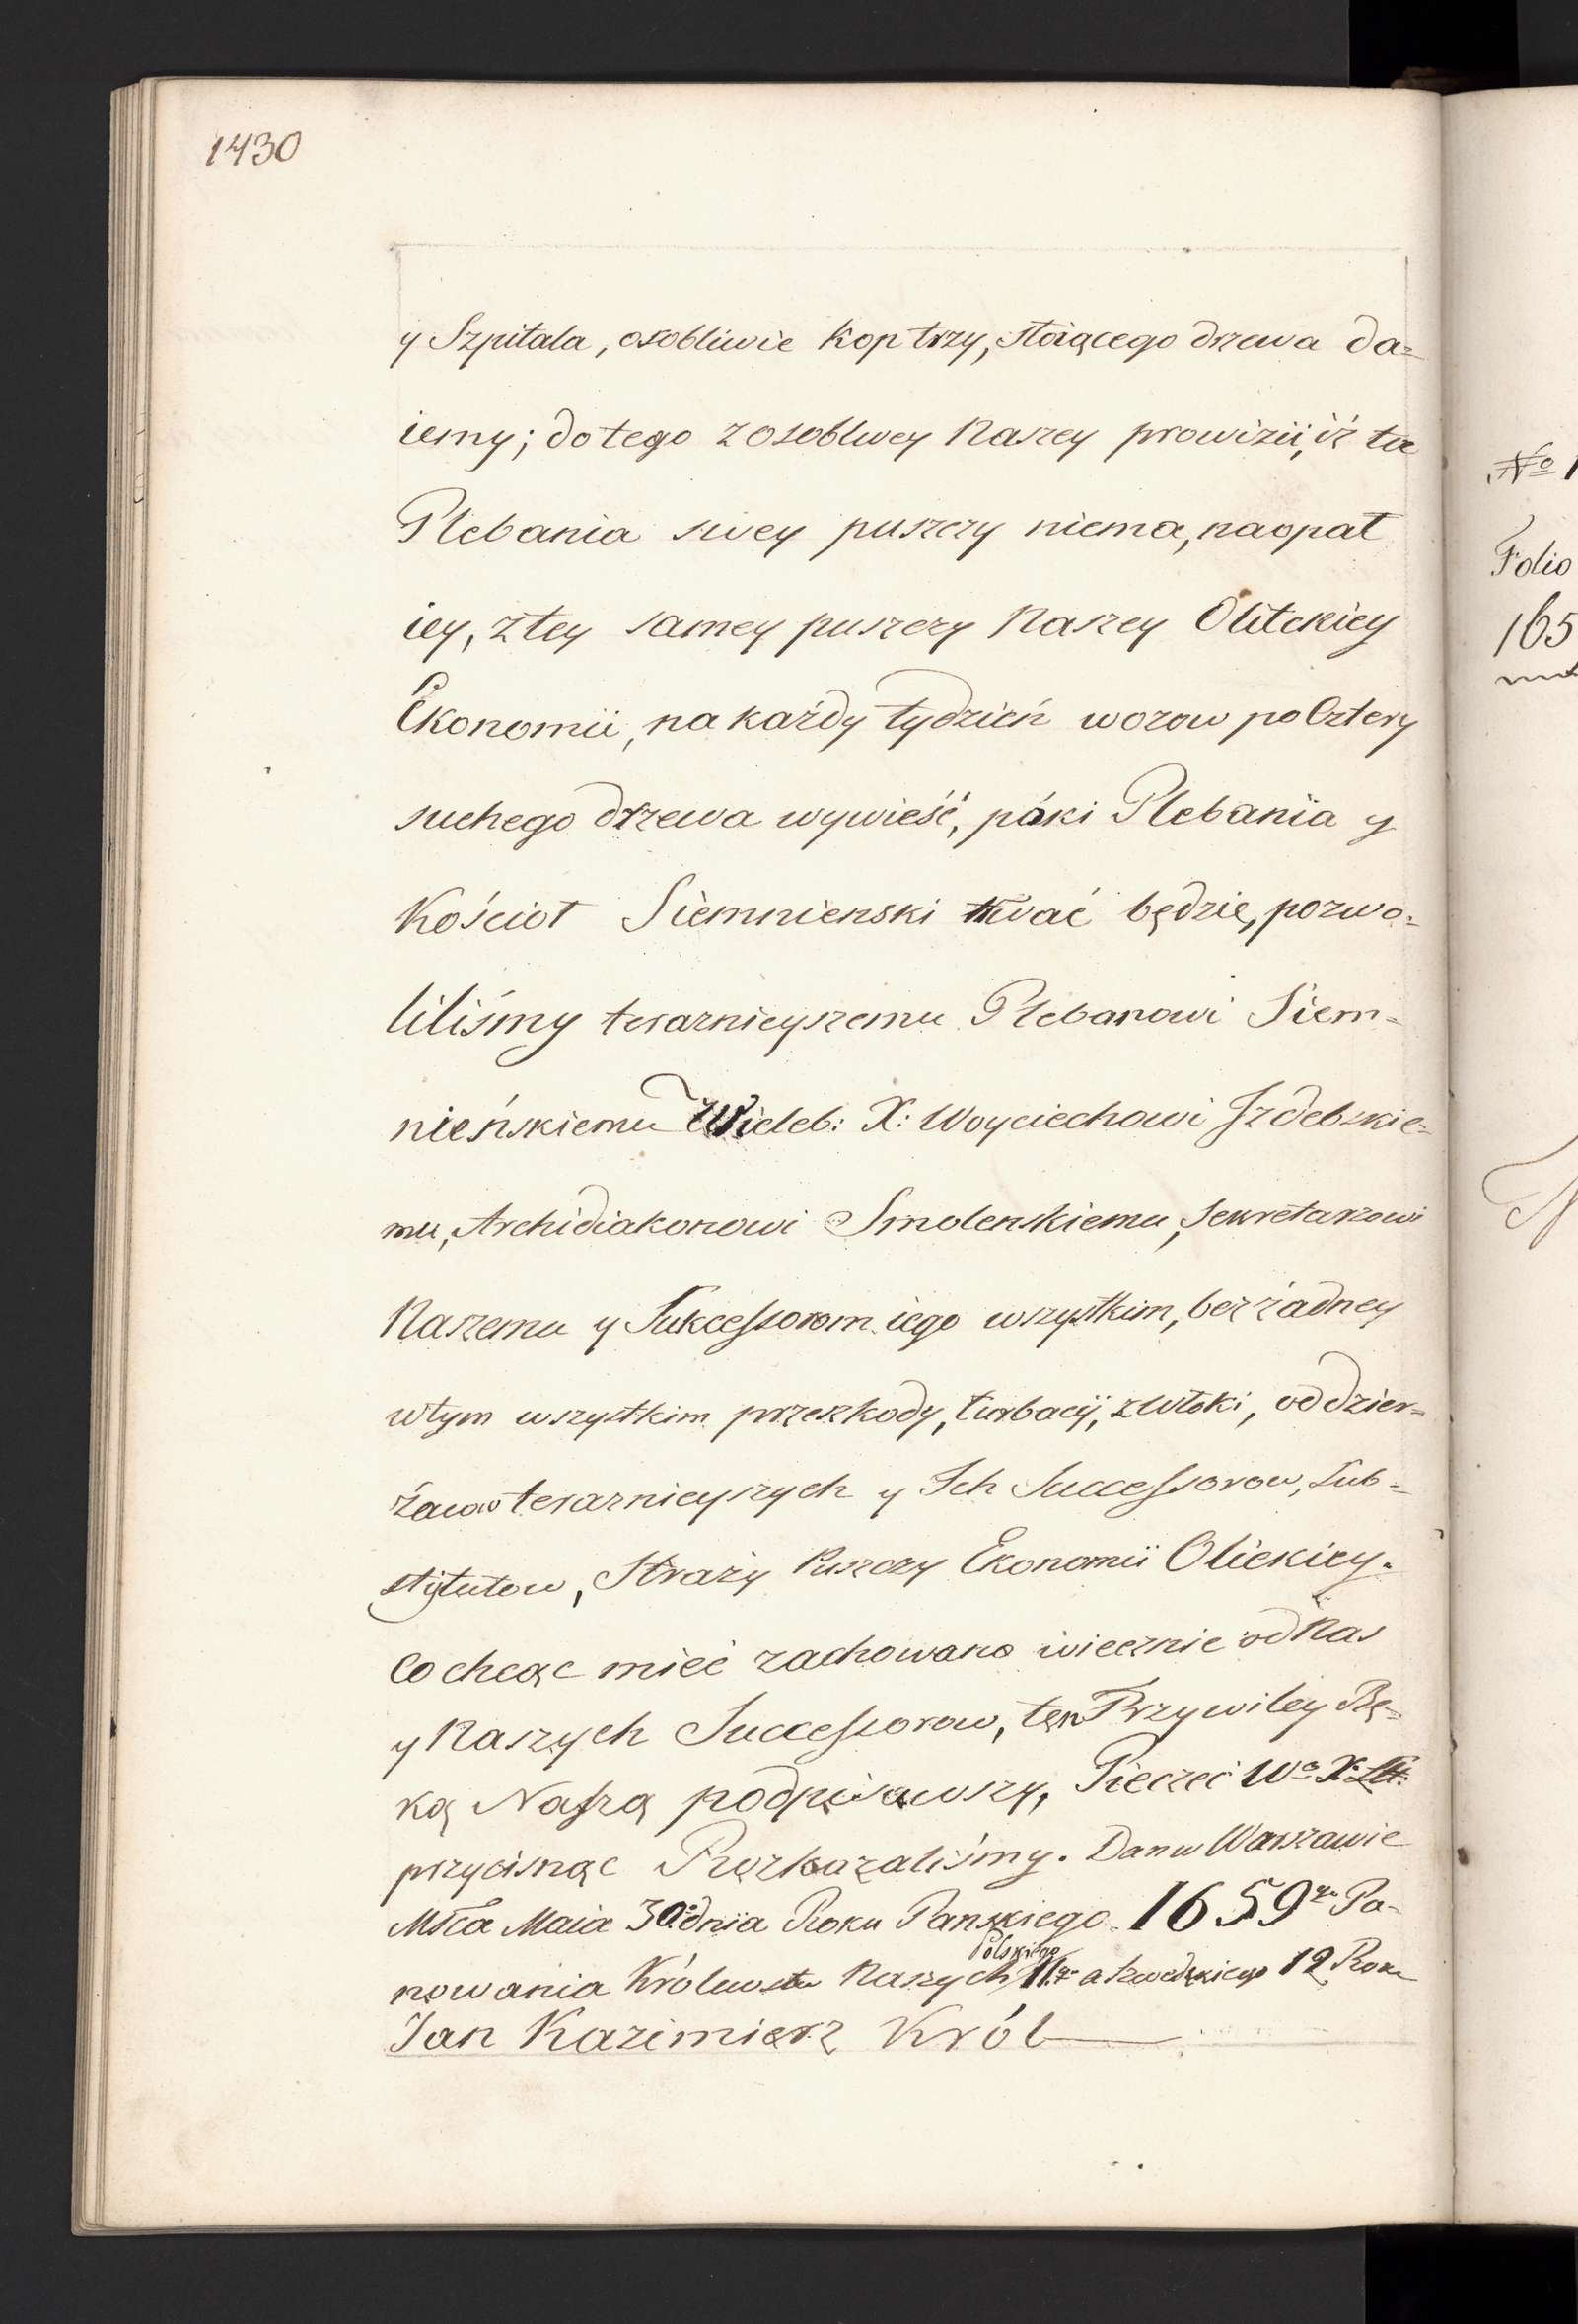 1430
y Szpitala, osobliwie Kop trzy, stoiącego drzewa da=
iemy; do tego z osobliwey Naszey prowizii, iż ta
Plebania swey puszczy niema, na opał
iey, z tey samey puszczy Naszey Olitckiey
Ekonomii, na każdy tydzień wozow po Cztery
suchego drzewa wywieść, póki Plebania y
Kościoł Siemnienski trwać będzie, pozwo=
liliśmy terazniejszemu Plebanowi Siem=
nieńskiemu Wieleb: X: Woyciechowi Jzdebskie=
mu, Archidiakonowi Smolenskiemu, Sekretarzowi
Naszemu y Sukcessorom iego wszystkim, bez żadney
w tym wszystkim przeszkody, turbacÿ, zwłoki, od dzier=
żawcow terazniejszych y Jch Successorow, Sub=
stytutow, Straży Puszczy Ekonomii Olickiey.
Co chcąc mieć zachowano wiecznie od Nas
y Naszych Successorow, ten Przywiley Rę=
ką Naszą podpisawszy, Pieczęć Wo X: Litt:
przycisnąc Rozkazaliśmy. Dan w Warszawie
Mśca Maia 30. dnia Roku Panskiego 1659go Pa=
nowania Królewstw Naszych Polskiego 11.go a Szwedzkiego 12 Roku
Jan Kazimierz Król
No 1
Folio
165